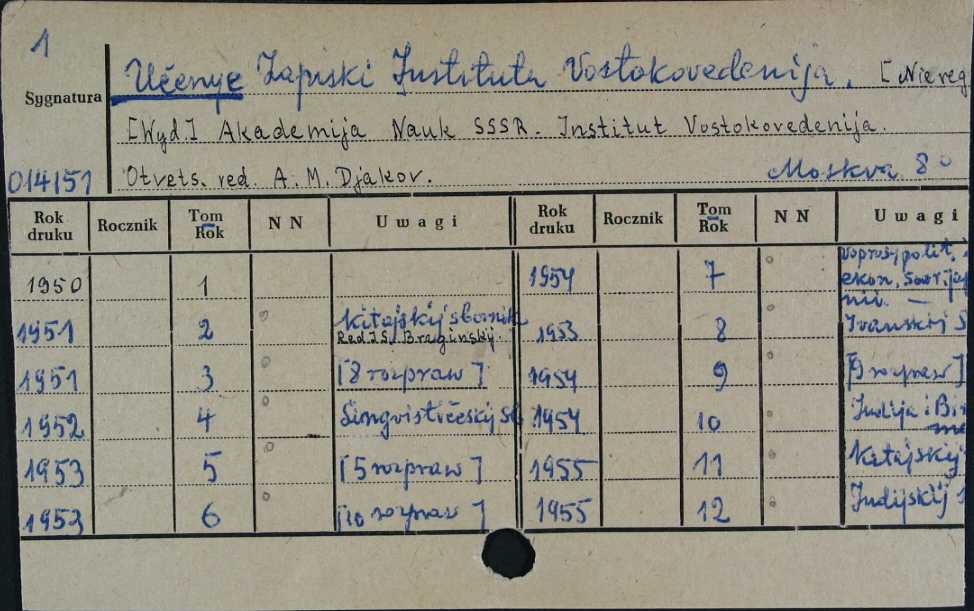 1
Učenye Zapiski Instituta Vostokovedenija. [Niereg
Sygnatura
[Wyd.] Akademija Nauk SSSR. Institut Vostokovedenija.
014151 Otvets. red. A. M. Djakov. Moskva 8°
Rok druku Rocznik Tom Rok N N Uwagi Rok druku Rocznik Tom Rok N N Uwagi
1950 1 1954 7 Voprosy polit. i
ekon. Sovr. Japonii. —
1951 2 Kitajskij sbornik 1953 8 Iranskij S
Red I.S. Braginskij.
1951 3 [8 rozpraw] 1954 9 [9 rozpraw]
1952 4 Lingvističeskij sb 1954 10 Indija i Bir
1953 5 [5 rozpraw] 1955 11 Kitajskij
1953 6 [10 rozpraw] 1955 12 Indijskij